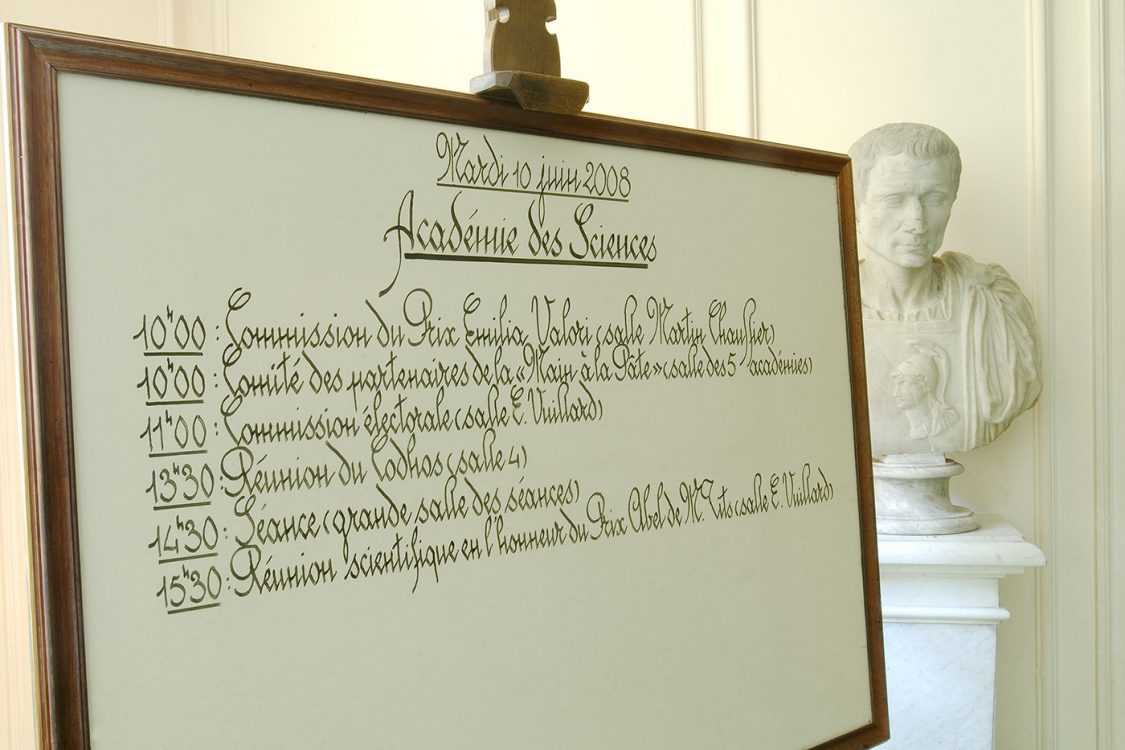 Mardi 10 juin 2008
Académie des Sciences
10h00 : Commission du Prix Emilia Valori (salle Martin Chauffier)
10h00 : Comité des partenaires de la « Main à la Pâte » (salle des 5 académies)
11h00 : Commission électorale (salle E. Vuillard)
13h30 : Réunion du Codhos (salle 4)
14h30 : Séance (grande salle des séances)
15h30 : Réunion scientifique en l'honneur du Prix Abel de M. Tits (salle E. Vuillard)